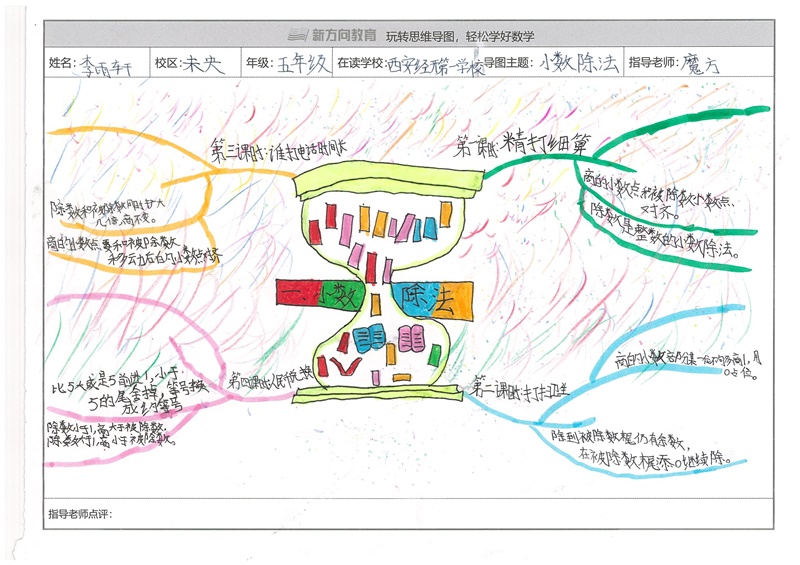 新方向教育 玩转思维导图，轻松学好数学
姓名：李雨轩 校区：未央 年级：五年级 在读学校：西安经开第一学校 导图主题：小数除法 指导老师：魔方
第一课时：精打细算
商的小数点和被除数小数点、
对齐。
除数是整数的小数除法。
第二课时：打扫卫生
商的小数部分某一位不够商1，用
0占位。
除到被除数末尾仍有余数，
在被除数末尾添0继续除。
第三课时：谁打电话时间长
除数和被除数同时扩大
几倍，商不变。
商的小数点要和被除数
移动过后的小数点对齐
第四课时：人民币兑换
比5大或是5前进1，小于
5的尾舍掉，等号换
成约等号
除数小于1，商大于被除数，
除数大于1，商小于被除数。
一、小数 除法
指导老师点评：